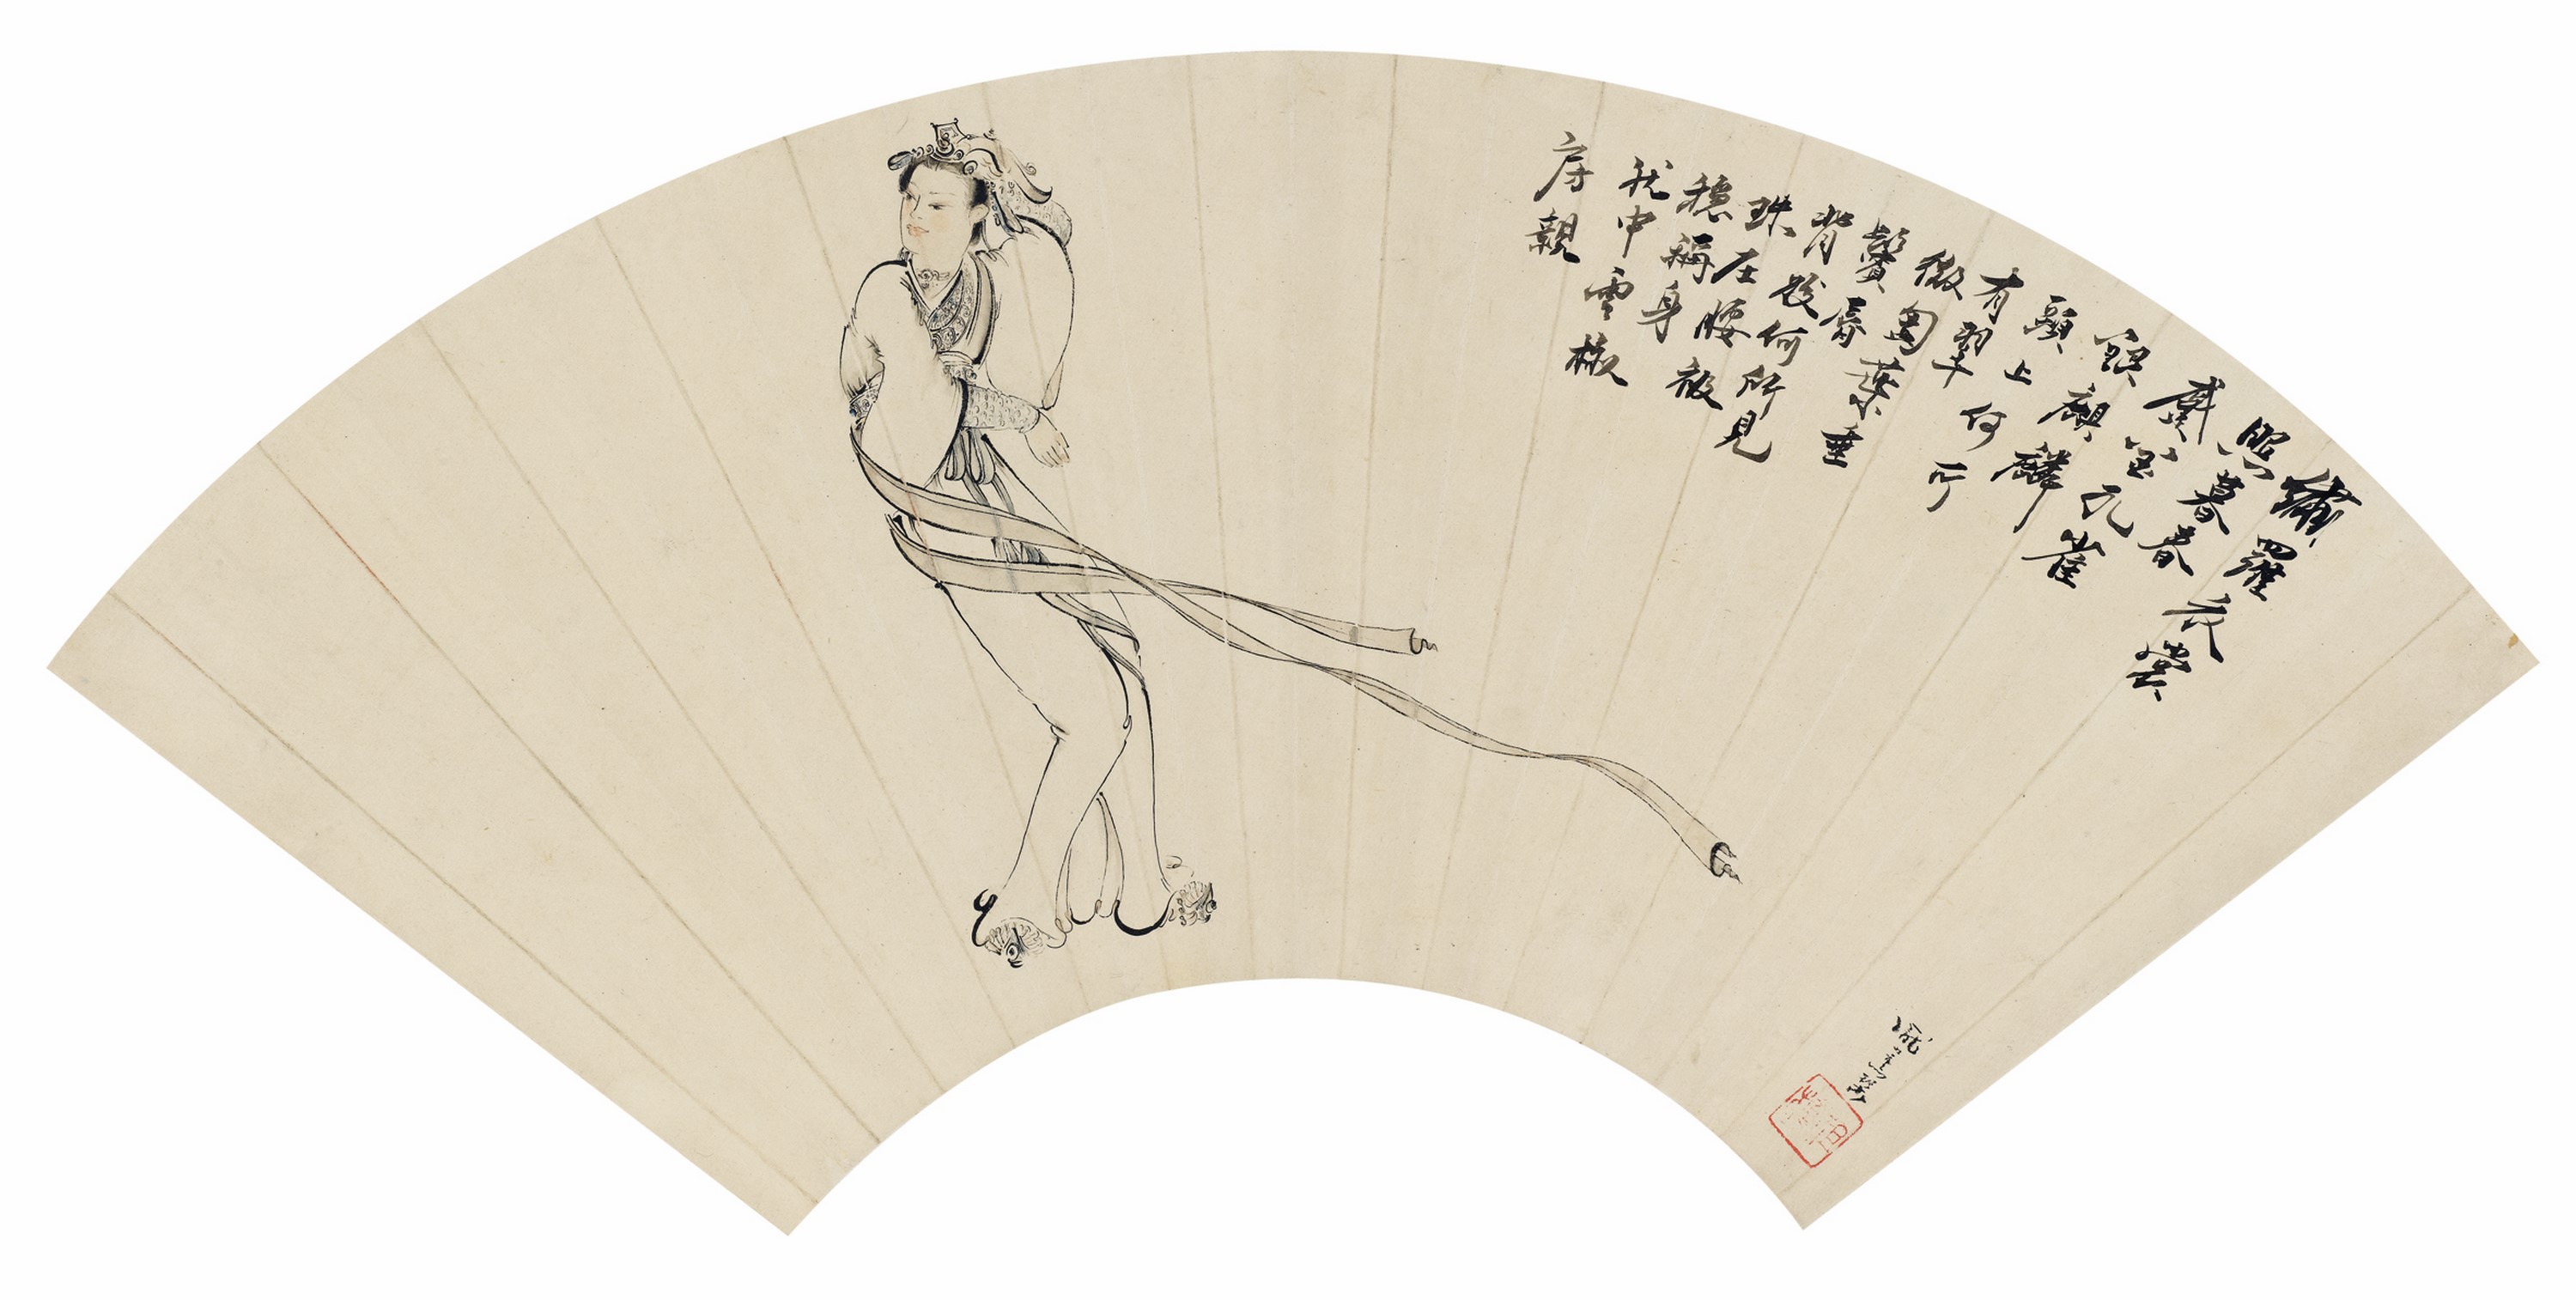 繡羅衣裳
照暮春
蹙金孔雀
銀麒麟
頭上何所
有翠
微㔩葉垂
鬢脣
背後何所見
珠压腰衱
穩稱身
就中雲椒
房親